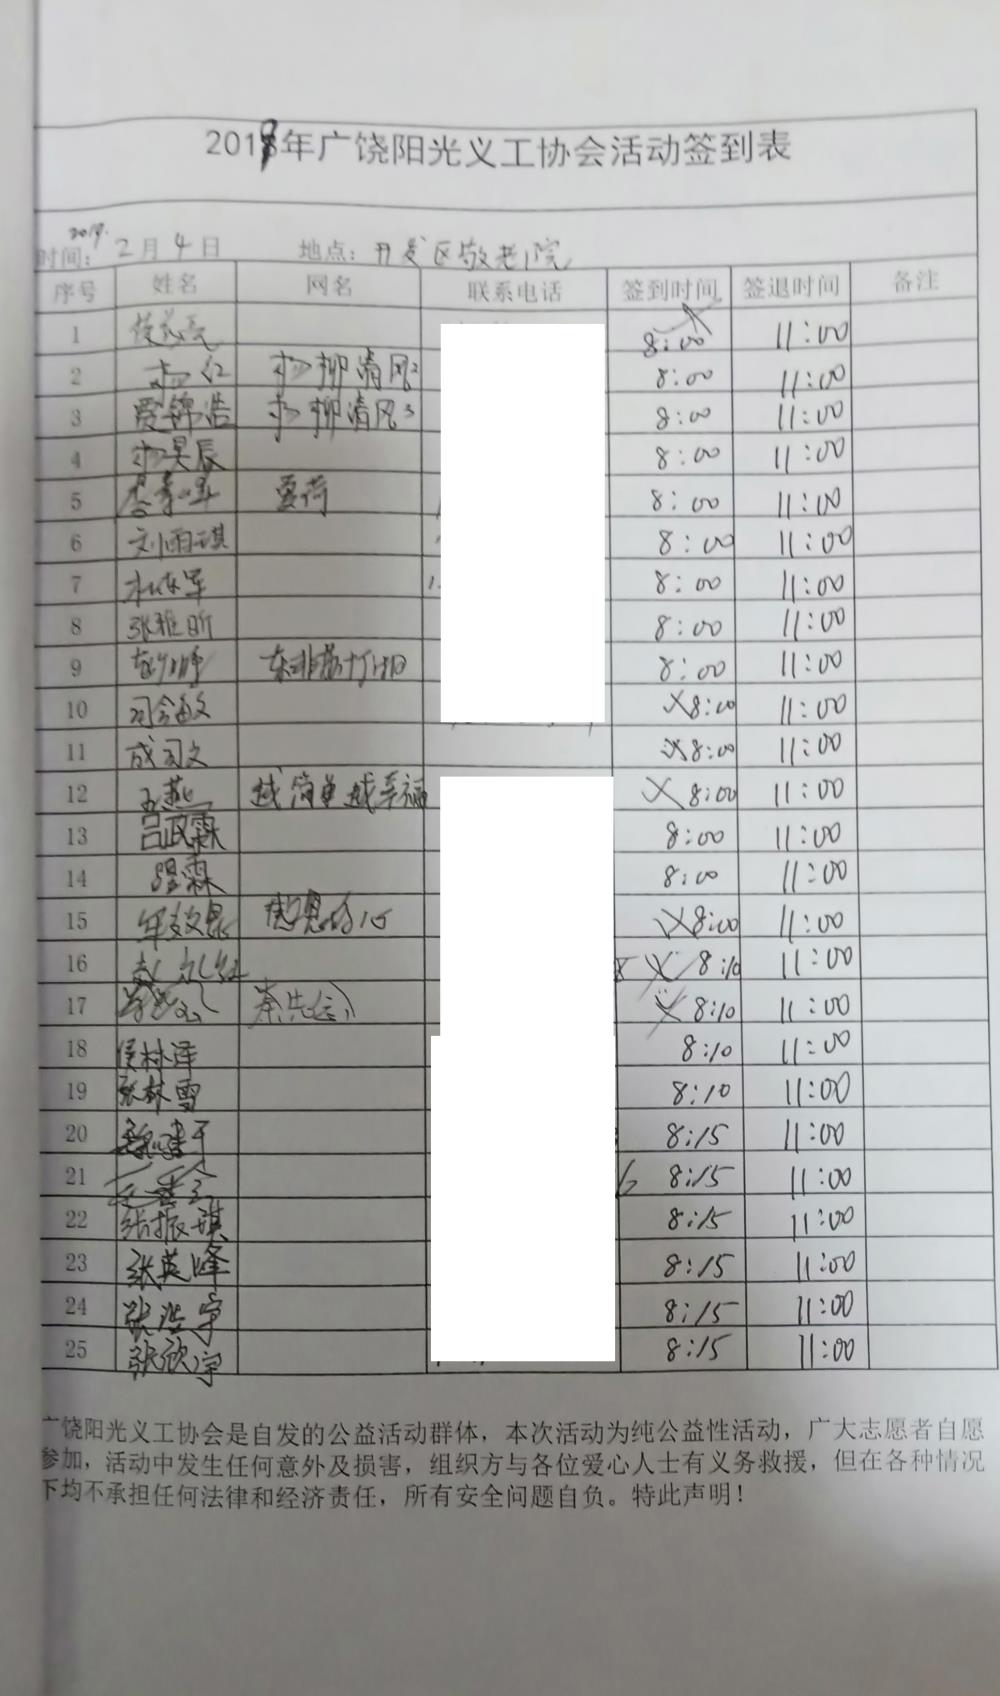 2019年广饶阳光义工协会活动签到表
2019.
时间: 2月4日 地点: 开发区敬老院
序号 姓名 网名 联系电话 签到时间 签退时间 备注
1 8:00 11:00
2 杨红 杨柳清风2 8:00 11:00
3 贾锦浩 杨柳清风3 8:00 11:00
4 杨昊辰 8:00 11:00
5 夏荷 8:00 11:00
6 刘雨琪 8:00 11:00
7 杜东军 8:00 11:00
8 张雅昕 8:00 11:00
9 8:00 11:00
10 8:00 11:00
11 成司文 8:00 11:00
12 王燕 越简单越幸福 8:00 11:00
13 吕政霖 8:00 11:00
14 8:00 11:00
15 感恩的心 8:00 11:00
16 8:10 11:00
17 8:10 11:00
18 侯林泽 8:10 11:00
19 张林雪 8:10 11:00
20 8:15 11:00
21 8:15 11:00
22 张振琪 8:15 11:00
23 张英峰 8:15 11:00
24 张浩宇 8:15 11:00
25 张欣宇 8:15 11:00
广饶阳光义工协会是自发的公益活动群体，本次活动为纯公益性活动，广大志愿者自愿
参加，活动中发生任何意外及损害，组织方与各位爱心人士有义务救援，但在各种情况
下均不承担任何法律和经济责任，所有安全问题自负。特此声明！